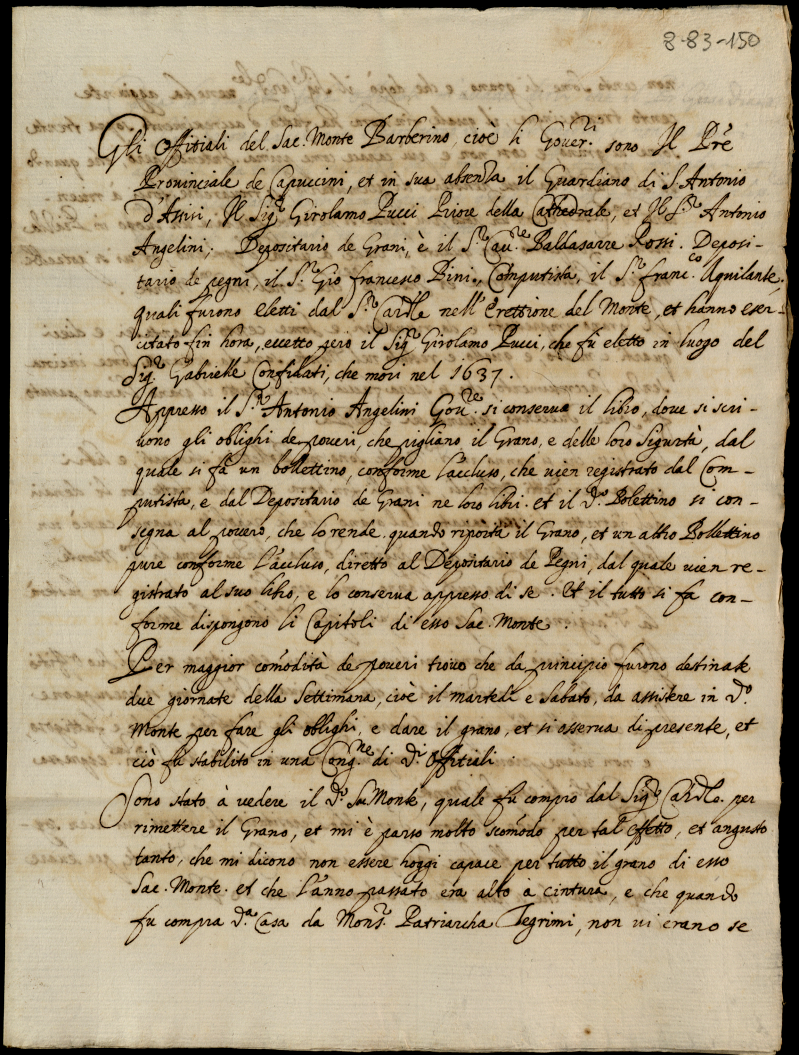 8-83-150
Gli Offitiali del Sac. Monte Barberino, cioè li Gover.ri sono Il Pre
Provinciale de Capuccini, et in sua absenza il Guardiano di S. Antonio
d'Assisi, Il Sig.r Girolamo Pucci Priore della Cathedrale, et Il S.r Antonio
Angelini; Depositario de Grani, è il S.r Cau.re Baldasarre Rossi. Deposi-
tario de pegni, il S.r Gio francesco Bini, Computista, il S.r franc.co Aquilante,
quali furono eletti dal S.r Cardle nell'Erettione del Monte, et hanno eser-
citato fin hora, eccetto però il Sig.r Girolamo Pucci, che fù eletto in luogo del
Sig.r Gabrielle Confidati, che morì nel 1637.
Appresso il S.r Antonio Angelini Gou.re si conserua il libro, doue si scri-
uono gli oblighi de poueri, che pigliano il Grano, e delle loro Sigurtà, dal
quale si fà un bollettino, conforme l'accluso, che uien registrato dal Com-
putista, e dal Depositario de Grani ne loro libri. et il d.o Bolettino si con-
segna al pouero, che lo rende quando riporta il Grano, et un altro Bollettino
pure conforme l'accluso, diretto al Depositario de Pegni, dal quale uien re-
gistrato al suo libro, e lo conserua appresso di se. Et il tutto si fa con-
forme dispongono li Capitoli di esso Sac. Monte.
Per maggior comodità de poueri trouo che da principio furono destinate
due giornate della Settimana, cioè il martedì e Sabato, da assistere in d.o
Monte per fare gli oblighi, e dare il grano, et si osserua di presente, et
ciò fu stabilito in una Cong.ne di d.i Offitiali.
Sono stato à uedere il d.o Monte, quale fu compro dal Sig.r Cardle. per
rimettere il Grano, et mi è parso molto scomodo per tal'effetto, et angusto
tanto, che mi dicono non essere hoggi capace per tutto il grano di esso
Sac. Monte. et che l'anno passato era alto à cintura, e che quando
fu compra d.a Casa da Mons.r Patriarcha Tegrimi, non ui erano se